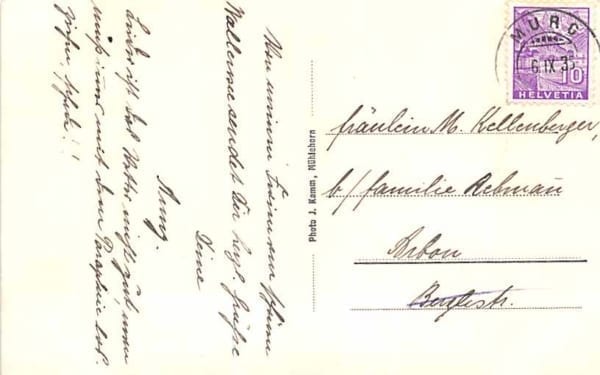 Von meinen Ferien am schönen
Wallensee sendet Dir herzl. Grüsse
Deine
Anny.
Leider ist das Wetter nicht gut, man
muss immer mit dem
ziehen, schade!!
Photo J. Kamm, Mühlehorn
MURG
6.IX.35
10
HELVETIA
Fräulein M. Kellenberger,
b/ Familie Rebmann
Arbon